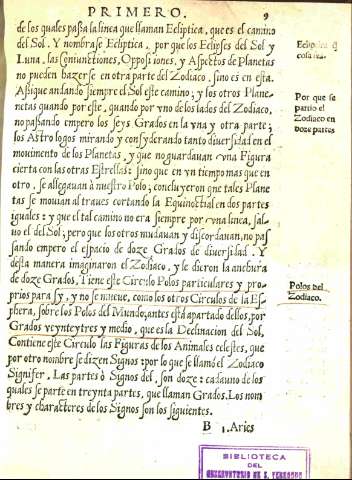 PRIMERO. 9
de los quales passa la linea que llaman Ecliptica, que es el camino
del Sol. Y nombrase Ecliptica, por que los Eclipses del Sol y
Luna, las conjunctiones, Oppositiones, y Aspectos de Planetas
no pueden hazerse en otra parte del Zodiaco, sino es en esta.
Assi que andando siempre el Sol este camino; y los otros Plane-
netas quando por este, quando por vno de los lados del Zodiaco,
no passando empero los seys Grados en la vna y otra parte;
los Astrologos mirando y considerando tanto diversidad en el
movimento de los Planetas, y que no guardauan vna Figura
cierta con las otras Estrellas: sino que en vn tiempo mas que en
otro, se allegauan à nuestro Polo; concluyeron que tales Plane
tas se mouian al traues cortando la Equinoctial en dos partes
iguales: y que el tal camino no era siempre por vna linea, sal-
uo el del Sol; pero que los otros mudauan y discordauan, no pas
sando empero el espacio de doze Grados de diversidad. Y
desta manera imaginaron el Zodiaco, y le dieron la anchura
de doze Grados, Tiene este Circulo Polos particulares y pro-
prios para sy, y no se mueve, como los otros Circulos de la Es-
phera, sobre los Polos del Mundo, antes està apartado dellos, por
Grados veynteytres y medio, que es la Declinacion del Sol.
Contiene este Circulo las Figuras de los Animales celestes, que
por otro nombre se dizen Signos: por lo que se llamó el Zodiaco
Signifer. Las partes ò Signos del, son doze: cada uno de los
quales se parte en treynta partes, que llaman Grados. Los nom
bres y characteres de los Signos son los siguientes.
B 1. Aries
Ecliptica q
cosa sea.
Por que se
partio el
Zodiaco en
doze partes
Polos del
Zodiaco.
BIBLIOTECA
DEL
OBSERVATORIO DE S. FERNANDO